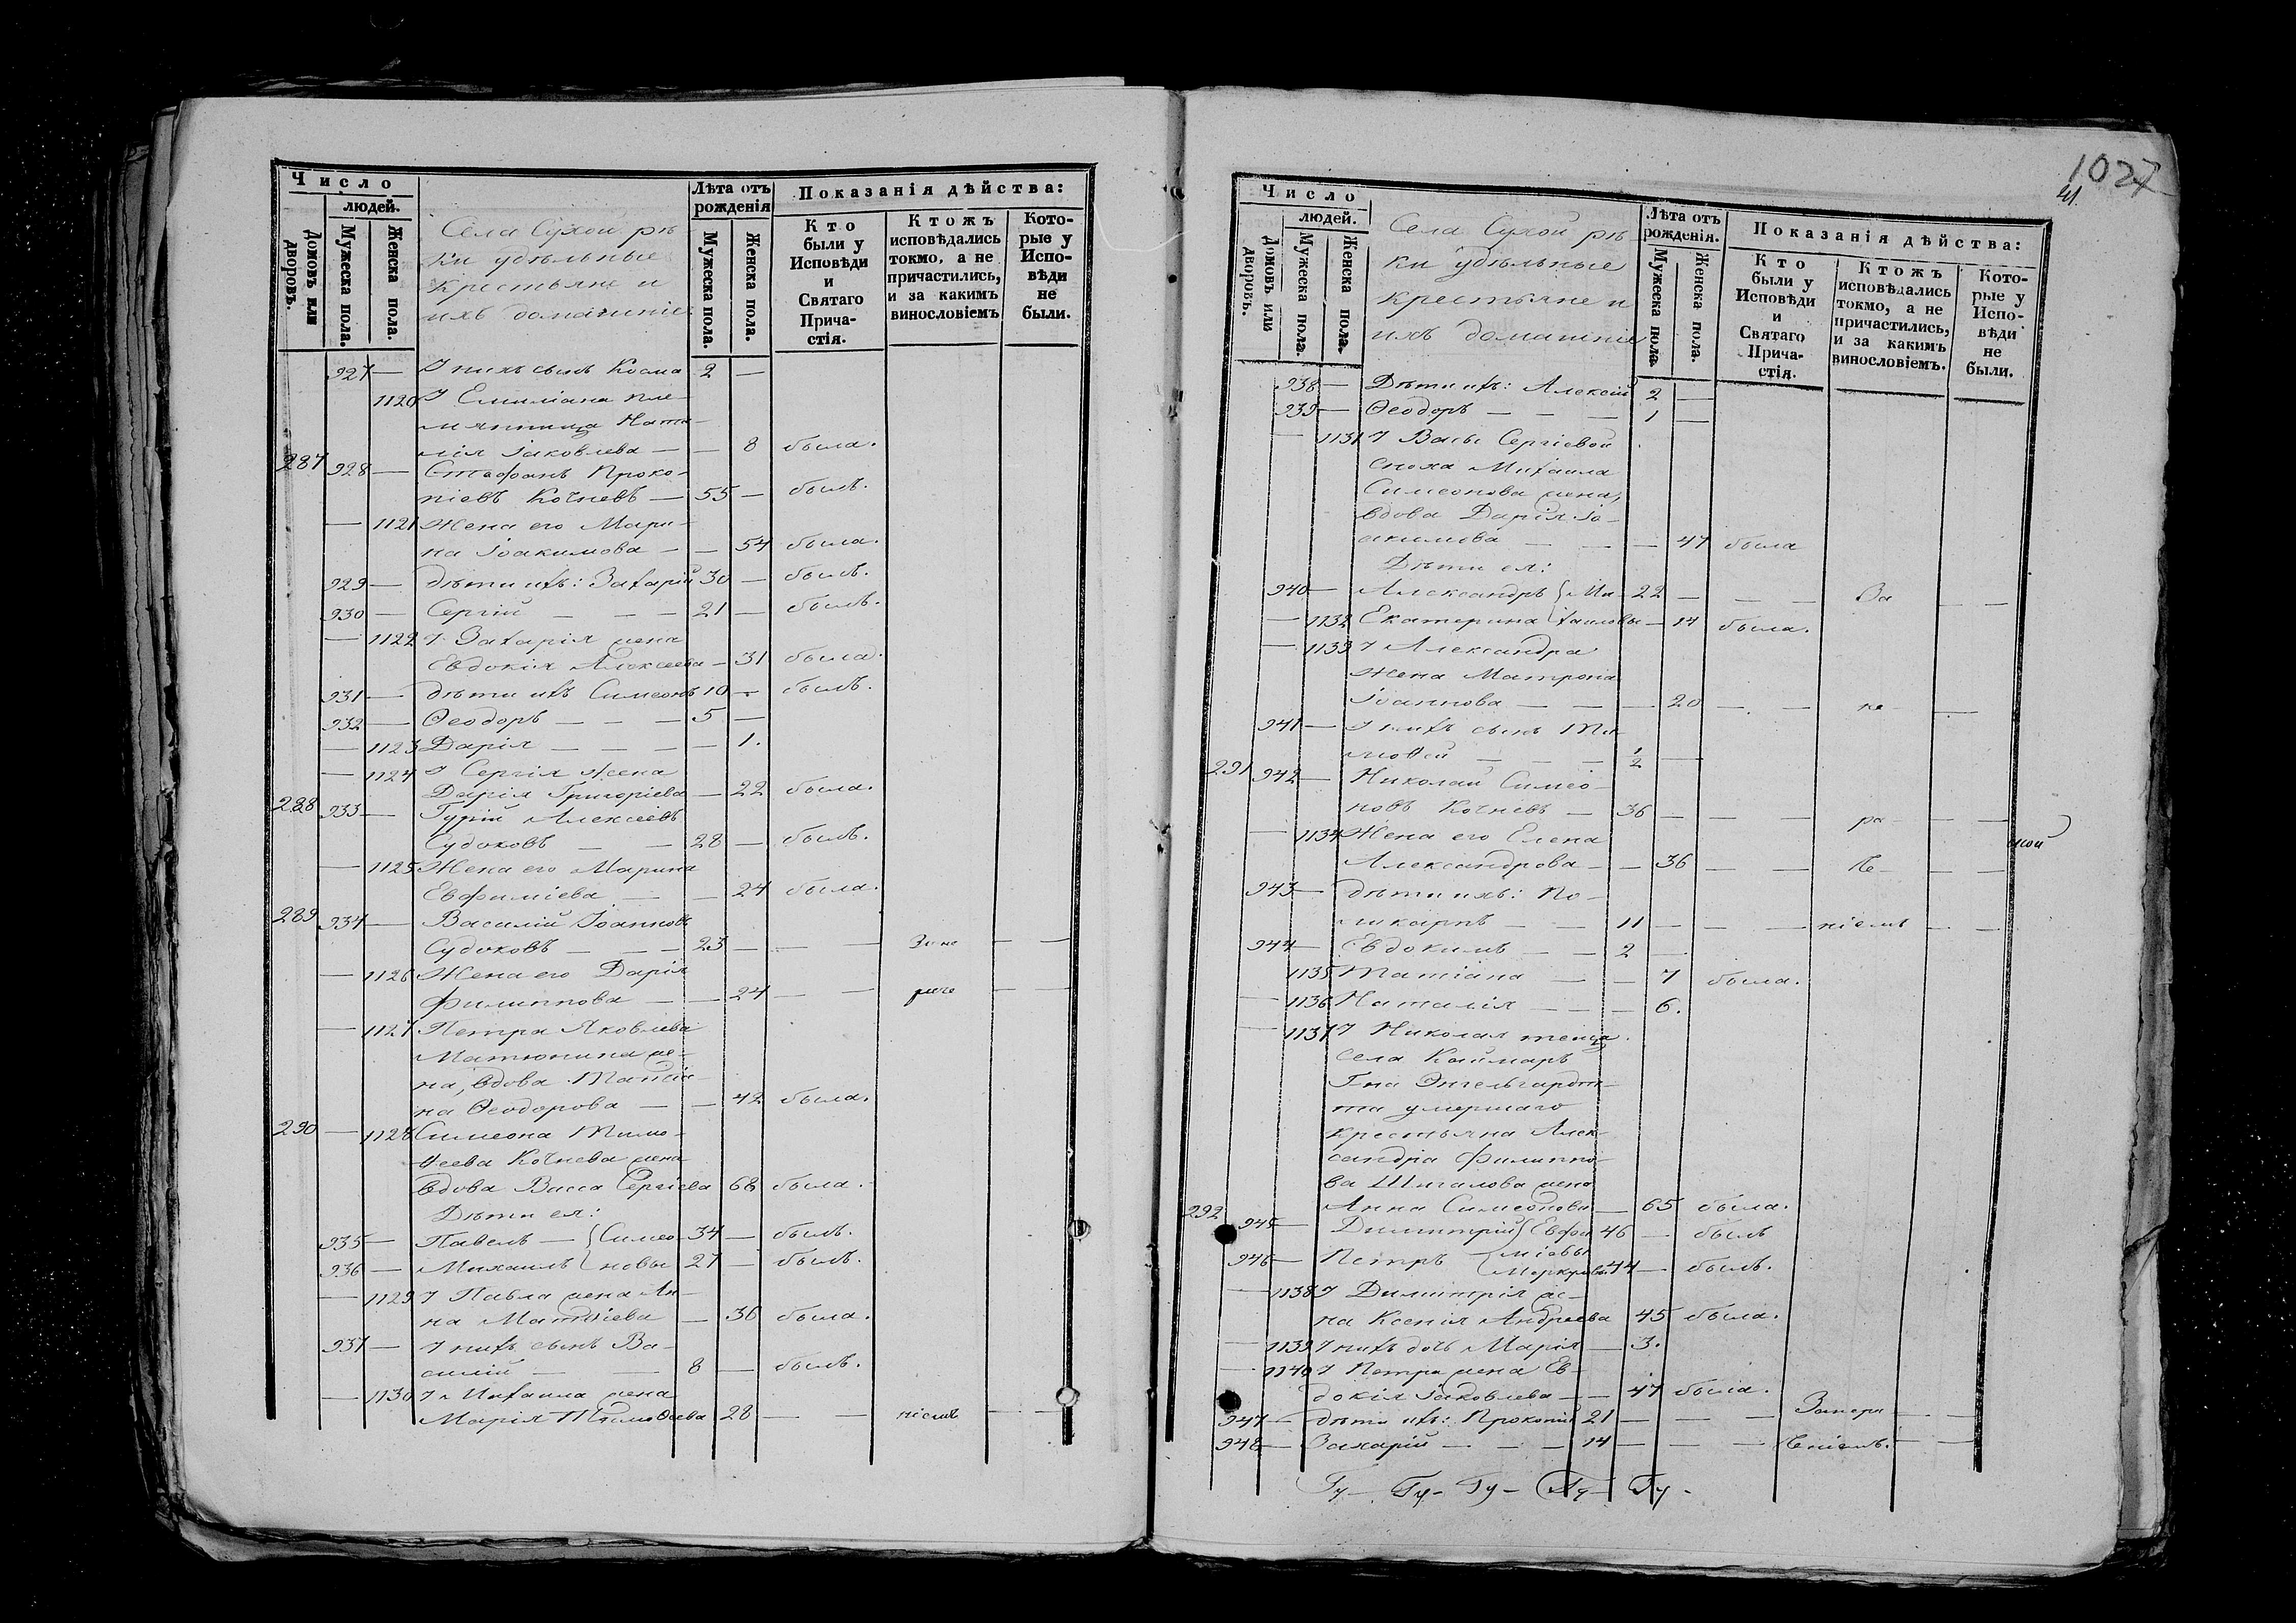 Число
людей.
Домовъ или дворовъ.
Мужеска пола.
Женска пола.
Села Сухой рѣ
ки удѣльные
крестьяне и
ихъ домашніе
Лѣта отъ
рожденія
Мужеска пола.
Женска пола.
Показанія дѣйства:
Кто
были у
Исповѣди
и
Святаго
Прича-
стія.
Ктожъ
исповѣдались
токмо, а не
причастились,
и за какимъ
винословіемъ
Кото-
рые у
Испо-
вѣди
не
были.
927 — У нихъ сынъ Косма 2 —
1120 У Емиліана пле-
мянница Ната-
лія Іаковлева — — 8 была.
287 928 — Стефанъ Проко-
піевъ Кочневъ — 55 — былъ.
— 1121 Жена его Мари-
на Іоакимова — — 54 была.
929 — Дѣти ихъ: Захарій 30 — былъ.
930 — Сергій — — — 21 — былъ.
— 1122 У Захарія жена
Евдокія Алексеева — 31 была.
931 — Дѣти ихъ Симеонъ 10 — былъ.
932 — Ѳеодоръ — — — 5 —
— 1123 Дарія — — — — 1.
— 1124 У Сергія жена
Дарія Григоріева — 22 была.
288 933 — Гурій Алексѣевъ
Судоковъ — — 28 — былъ.
— 1125 Жена его Марина
Евфиміева — — 24 была.
289 934 — Василій Іоанновъ
Судоковъ — — 23 — — — За не — —
— 1126 Жена его Дарія
Филиппова — — 24 — — — —
— 1127 Петра Яковлева
Матюнина же-
на, вдова Татіа-
на Ѳеодорова — — 42 была.
290 — 1128 Симеона Тимо-
ѳеева Кочнева жена
вдова Васса Сергіева 68 была.
Дѣти ея:
935 — Павелъ — { Симео- 34 — былъ.
936 — Михаилъ { новы 27 — былъ.
— 1129 У Павла жена Ан-
на Матвіева — 36 была.
937 — У нихъ сынъ Ва-
силій — — 8 — былъ.
— 1130 У Михаила жена
Марія Тимоѳеева 28 — — ніемъ — —
1027
41
Число
людей.
Домовъ или дворовъ.
Мужеска пола.
Женска пола.
Села Сухой рѣ-
ки удѣльные
крестьяне и
ихъ домашніе
Лѣта отъ
рожденія.
Мужеска пола.
Женска пола.
Показанія дѣйства:
Кто
были у
Исповѣди
и
Святаго
Прича-
стія.
Ктожъ
исповѣдались
токмо, а не
причастились,
и за какимъ
винословіемъ.
Кото-
рые у
Испо-
вѣди
не
были.
938 — Дѣти ихъ: Алексѣй 2 —
939 — Ѳеодоръ — — — 1 —
— 1131 У Вассы Сергіевой
сноха Михаила
Симеонова жена,
вдова Дарія Іо-
акимова — — — 47 была
Дѣти ея:
940 — Александръ { Ми- 22 — — — За — —
— 1132 Екатерина { хаиловы — 14 была.
— 1133 У Александра
жена Матрона
Іоаннова — — — 20 — — не — —
941 — У нихъ сынъ Ти-
моѳей — — — 1/2 —
291 942 — Николай Симео-
новъ Кочневъ — 36 — — — ра — —
— 1134 Жена его Елена
Александрова — — 36 — — че — —
943 — Дѣти ихъ: По-
ликарпъ — — 11 — — — ніемъ — —
944 — Евдокимъ — — 2 —
1135 Татіана — — 7 была.
— 1136 Наталія — — — 6.
— 1137 У Николая теща
села Каймаръ
Г-на Энгельгард-
та умершаго
крестьяна Алек-
сандра Филиппо-
ва Шигалова жена
Анна Симеонова — 65 была.
292 945 — Димитрій { Евфи- 46 — былъ
946 — Петръ { міевы 44 — былъ.
— 1138 У Димитрія же-
на Ксенія Андреева 45 была.
— 1139 У нихъ дочь Марія — 3.
— 1140 У Петра жена Ев-
докія Іаковлева — — 47 была.
947 — Дѣти ихъ: Прокопій 21 — — — Занера — —
948 — Захарій — — — 14 — — — ченіемъ. — —
Гу — Гу — Гу — Гу — Гу —